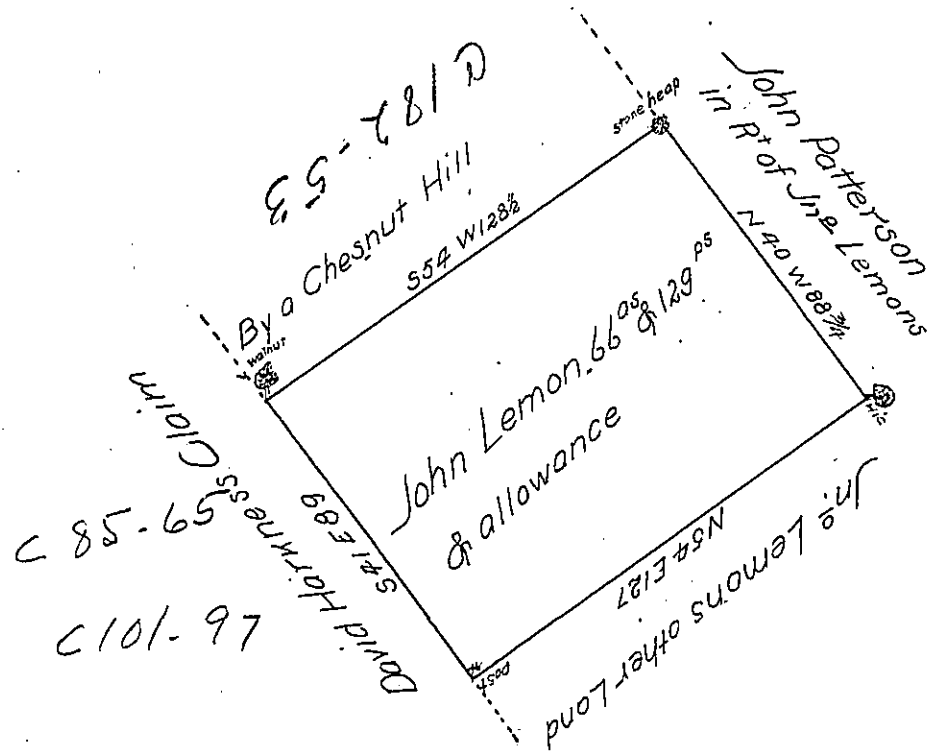 C 182-53
By a Chesnut Hill
stone heap
John Patterson
in Rt of Jno Lemons
S54 W128½
N40 W88¾
walnut
John Lemon 66as & 129ps
& allowance
Hic
David Harkness's Claim
S41 E89
N54 E127
post
Jno Lemons other Land
C 85-65
C 101-97